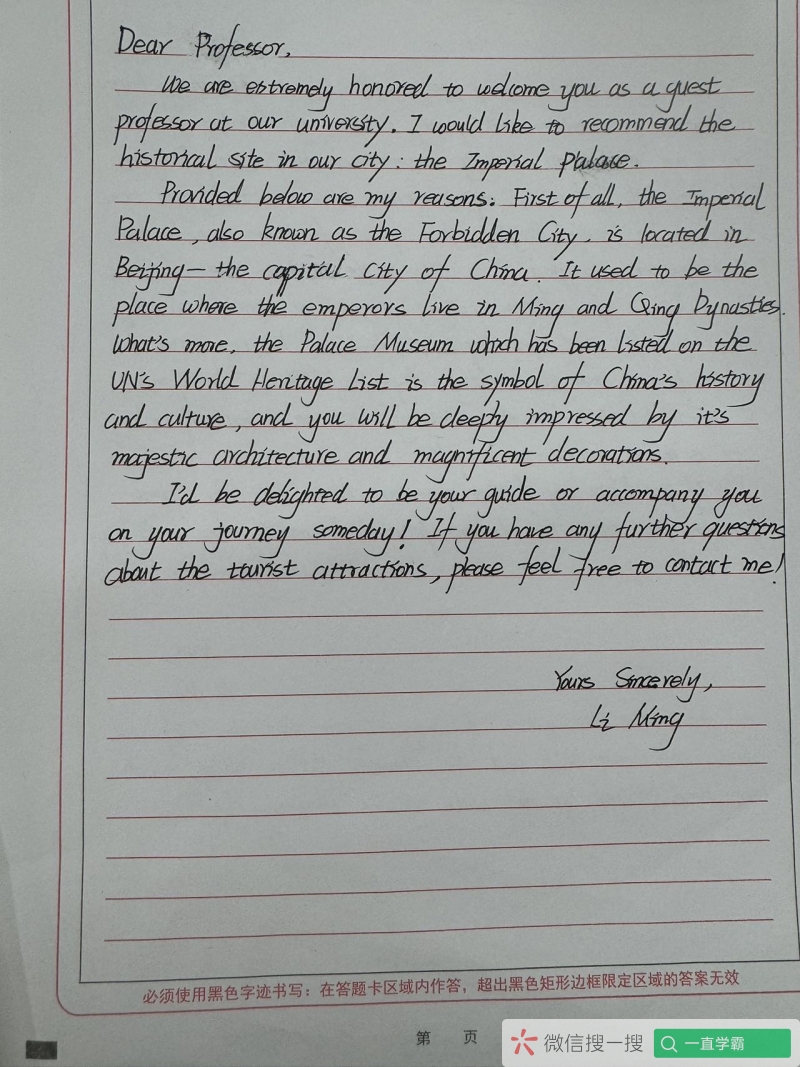 Dear Professor,
We are extremely honored to welcome you as a guest
professor at our university. I would like to recommend the
historical site in our city: the Imperial Palace.
Provided below are my reasons: First of all, the Imperial
Palace, also known as the Forbidden City, is located in
Beijing— the capital city of China. It used to be the
place where the emperors live in Ming and Qing Dynasties.
What's more, the Palace Museum which has been listed on the
UN's World Heritage List is the symbol of China's history
and culture, and you will be deeply impressed by it's
majestic architecture and magnificent decorations.
I'd be delighted to be your guide or accompany you
on your journey someday! If you have any further questions
about the tourist attractions, please feel free to contact me!
Yours Sincerely,
Li Ming
必须使用黑色字迹书写：在答题卡区域内作答，超出黑色矩形边框限定区域的答案无效
第 页
微信搜一搜 一直学霸